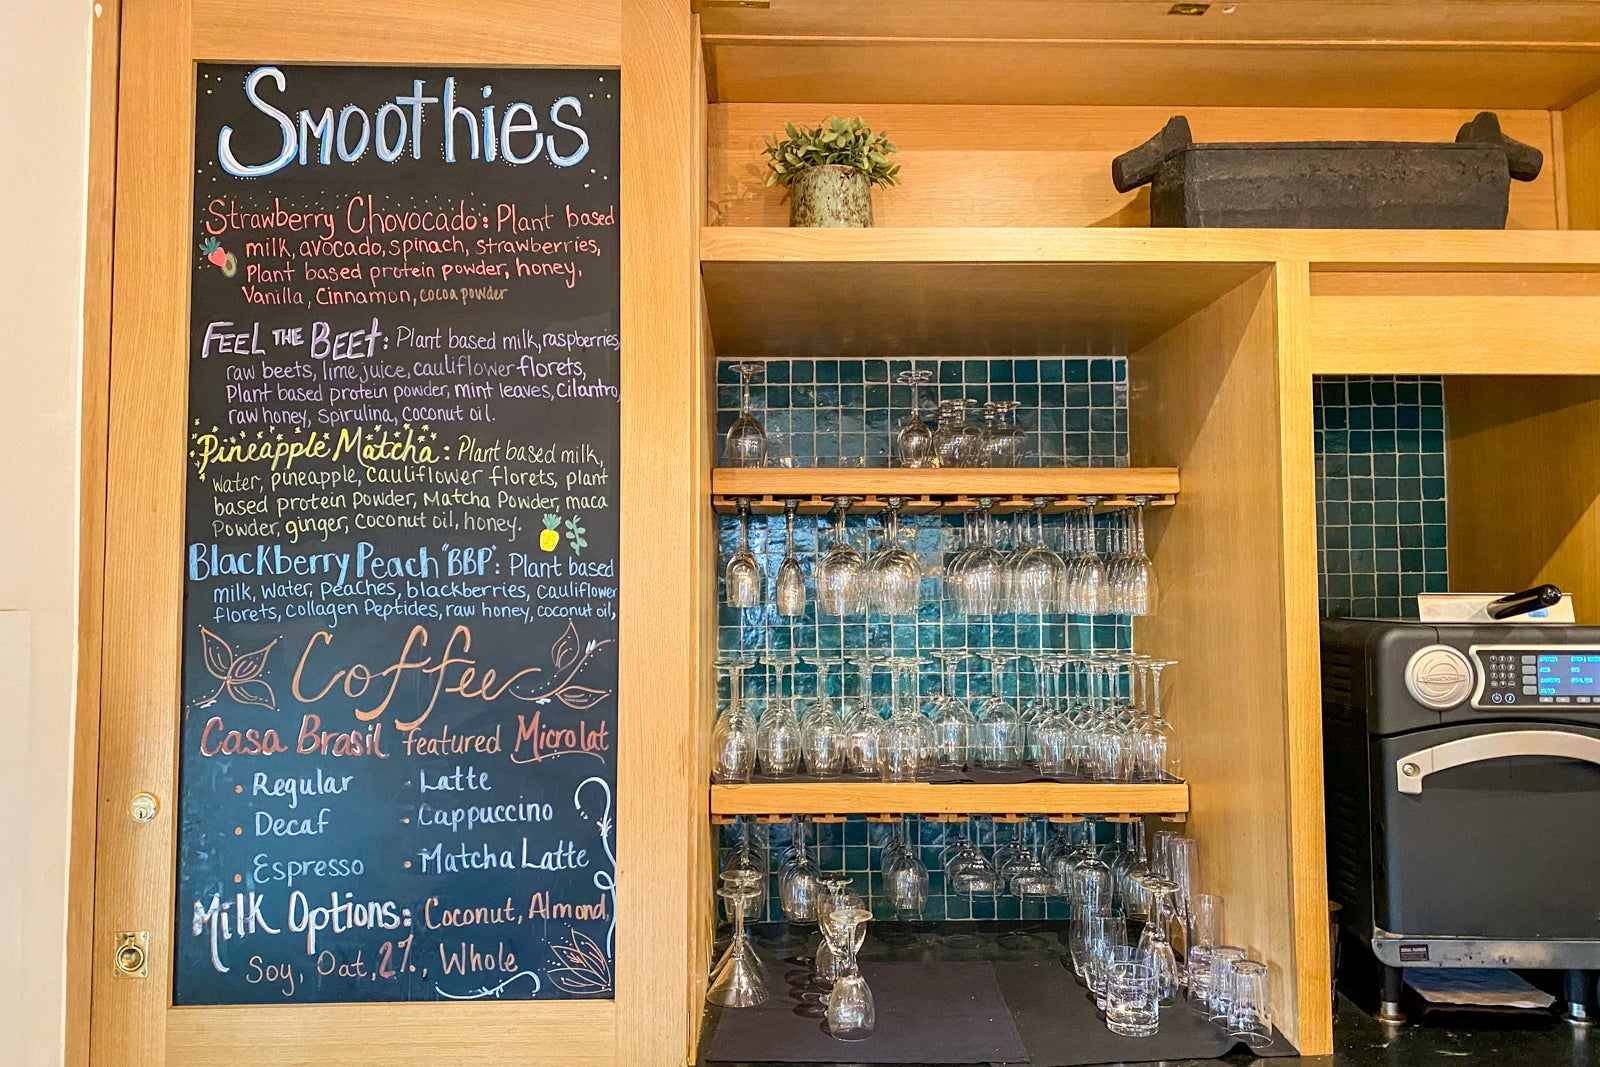 Smoothies
Strawberry Chovocado: Plant based
milk, avocado, spinach, strawberries,
Plant based protein powder, honey,
Vanilla, Cinnamon, cocoa powder
FEEL THE BEET: Plant based milk, raspberries,
raw beets, lime juice, cauliflower florets,
Plant based protein powder, mint leaves, Cilantro,
raw honey, spirulina, coconut oil.
Pineapple Matcha: Plant based milk,
water, pineapple, cauliflower florets, plant
based protein powder, Matcha Powder, maca
Powder, ginger, coconut oil, honey.
Blackberry Peach "BBP": Plant based
milk, water, peaches, blackberries, cauliflower
florets, collagen Peptides, raw honey, coconut oil,
Coffee
Casa Brasil featured Microlat
• Regular • Latte
• Decaf • Cappuccino
• Espresso • Matcha Latte
Milk Options: Coconut, Almond,
Soy, Oat, 2%, Whole